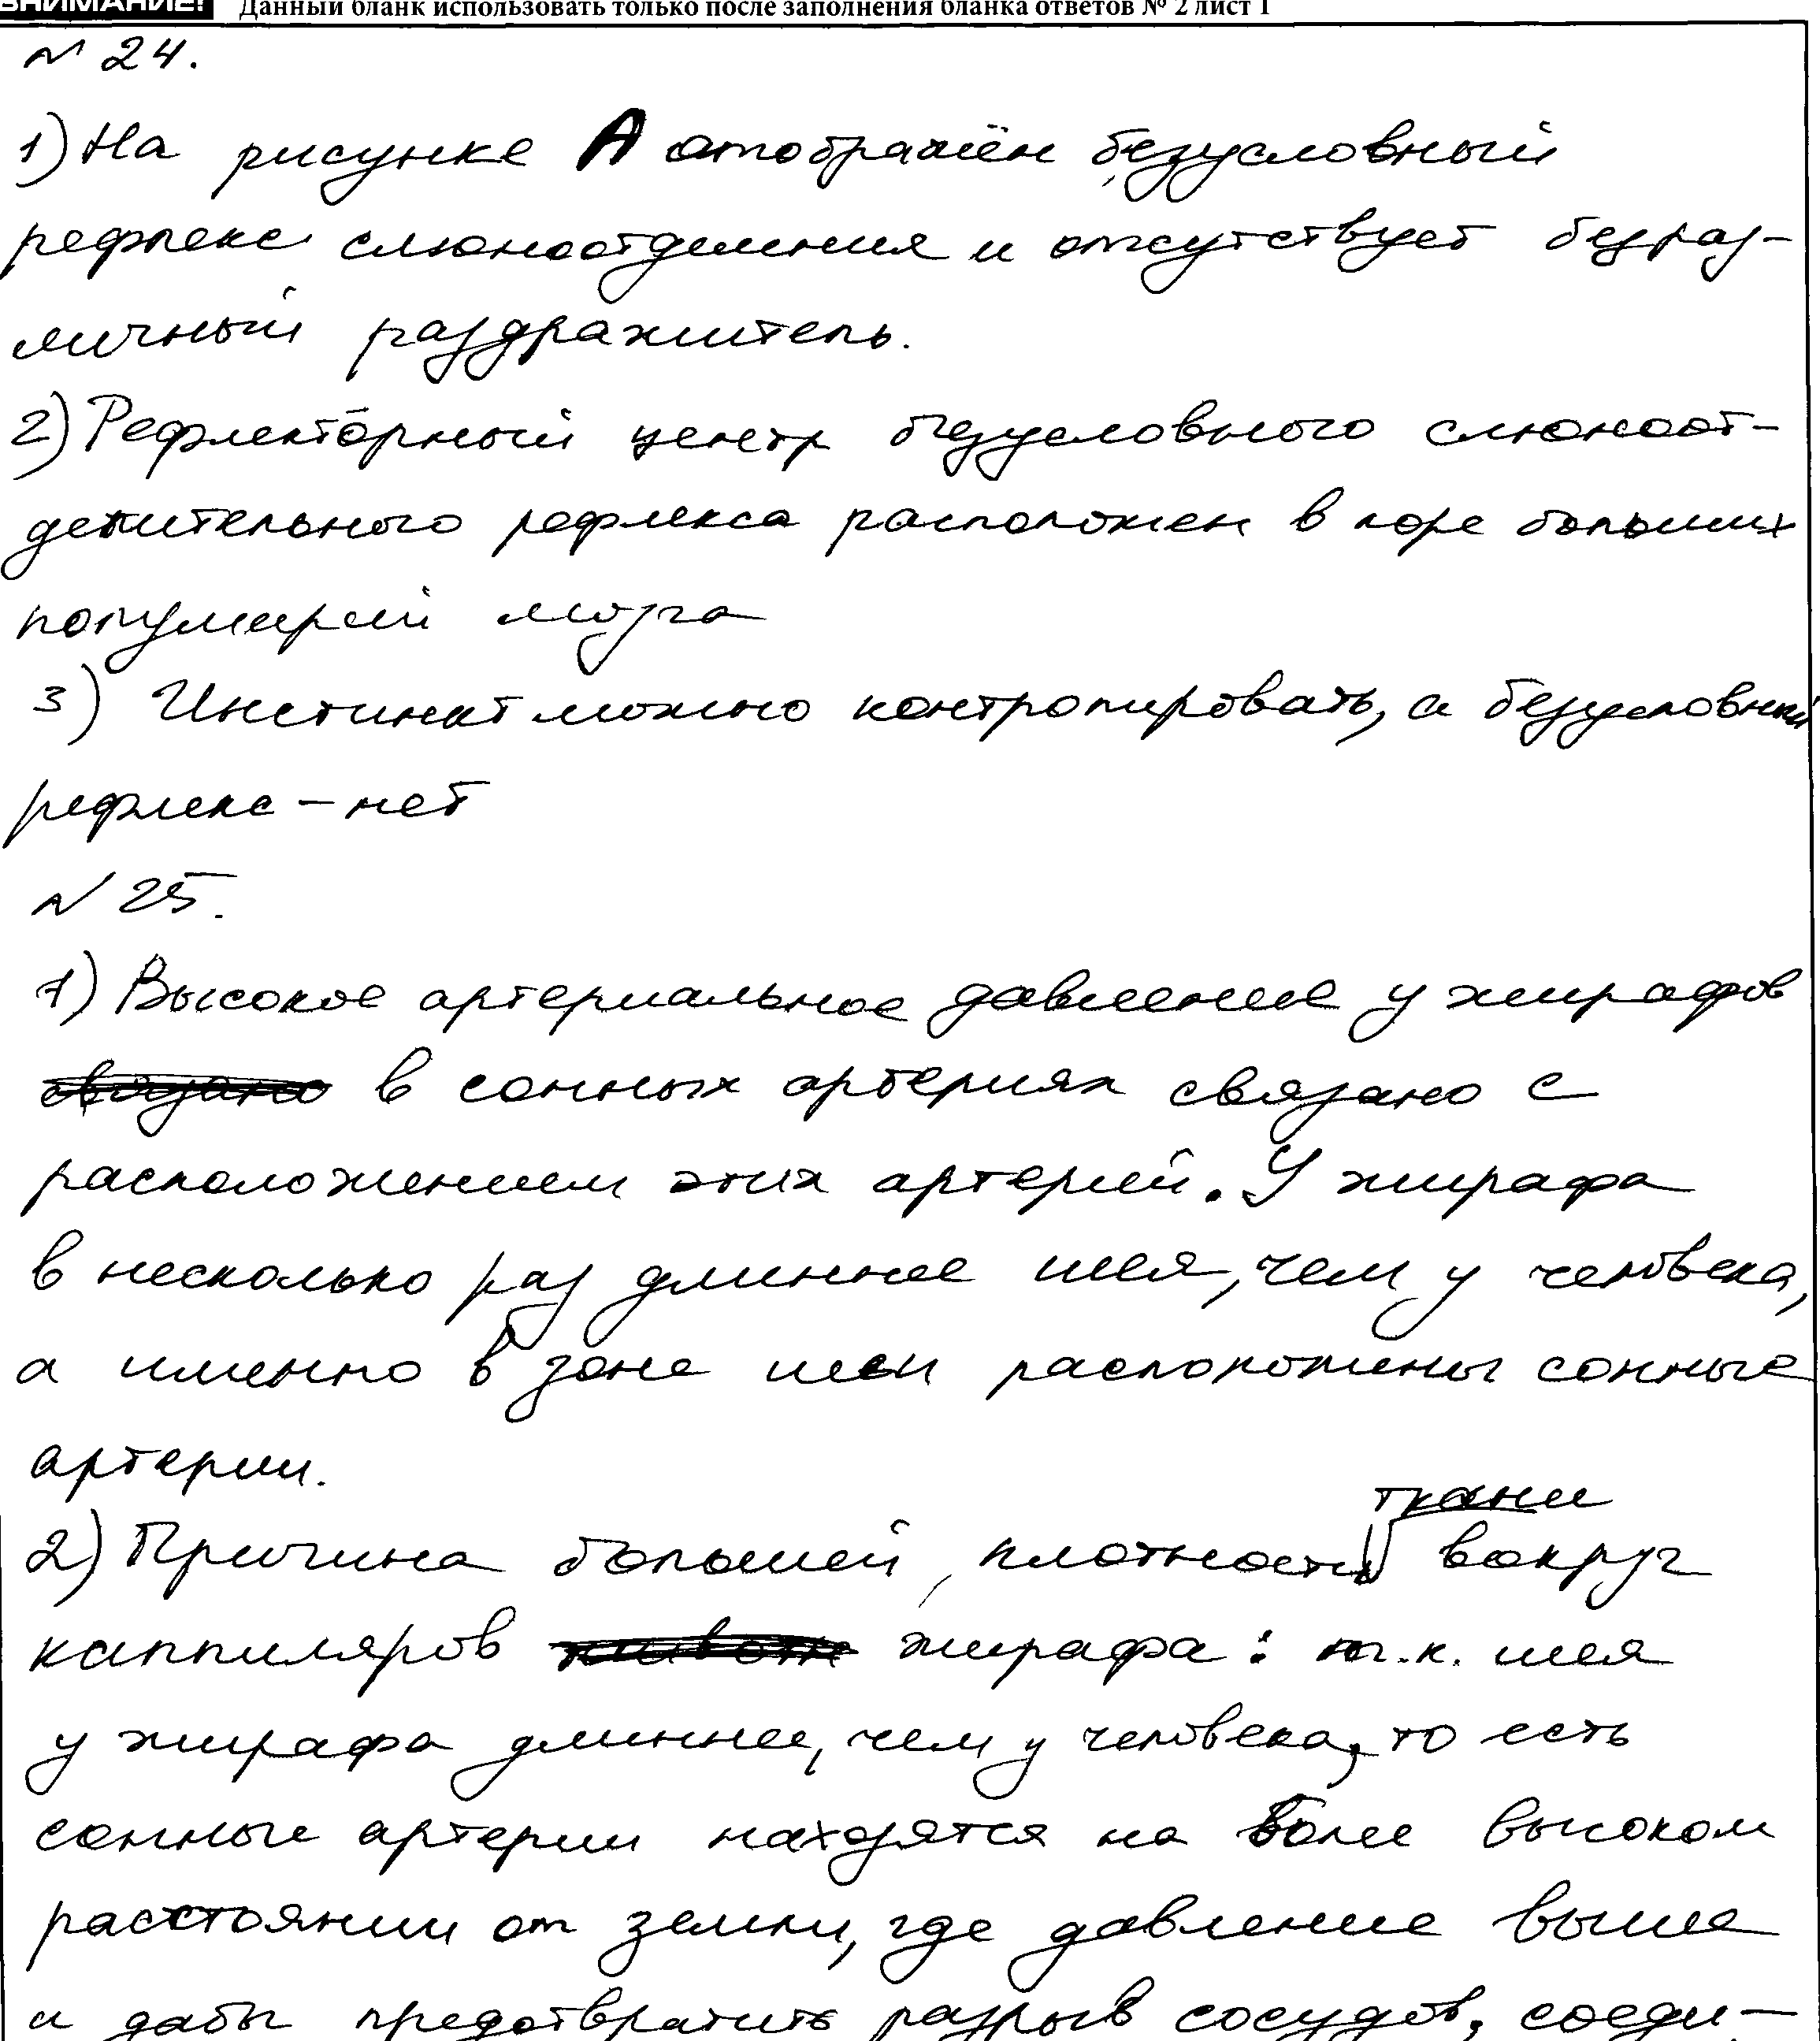 ВНИМАНИЕ! Данный бланк использовать только после заполнения бланка ответов № 2 лист 1
№ 24.
1) На рисунке А отображён безусловный
рефлекс слюноотделения и отсутствует безраз-
личный раздражитель.
2) Рефлекторный центр безусловного слюноот-
делительного рефлекса расположен в коре больших
полушарий мозга
3) Инстинкт можно контролировать, а безусловный
рефлекс – нет
№ 25.
1) Высокое артериальное давление у жирафов
в сонных артериях связано с
расположением этих артерий. У жирафа
в несколько раз длиннее шея, чем у человека,
а именно в зоне шеи расположены сонные
артерии.
2) Причина большей плотности ткани вокруг
каппиляров жирафа: т.к. шея
у жирафа длиннее, чем у человека, то есть
сонные артерии находятся на более высоком
расстоянии от земли, где давление выше
и дабы предотвратить разрыв сосудов, соеди-